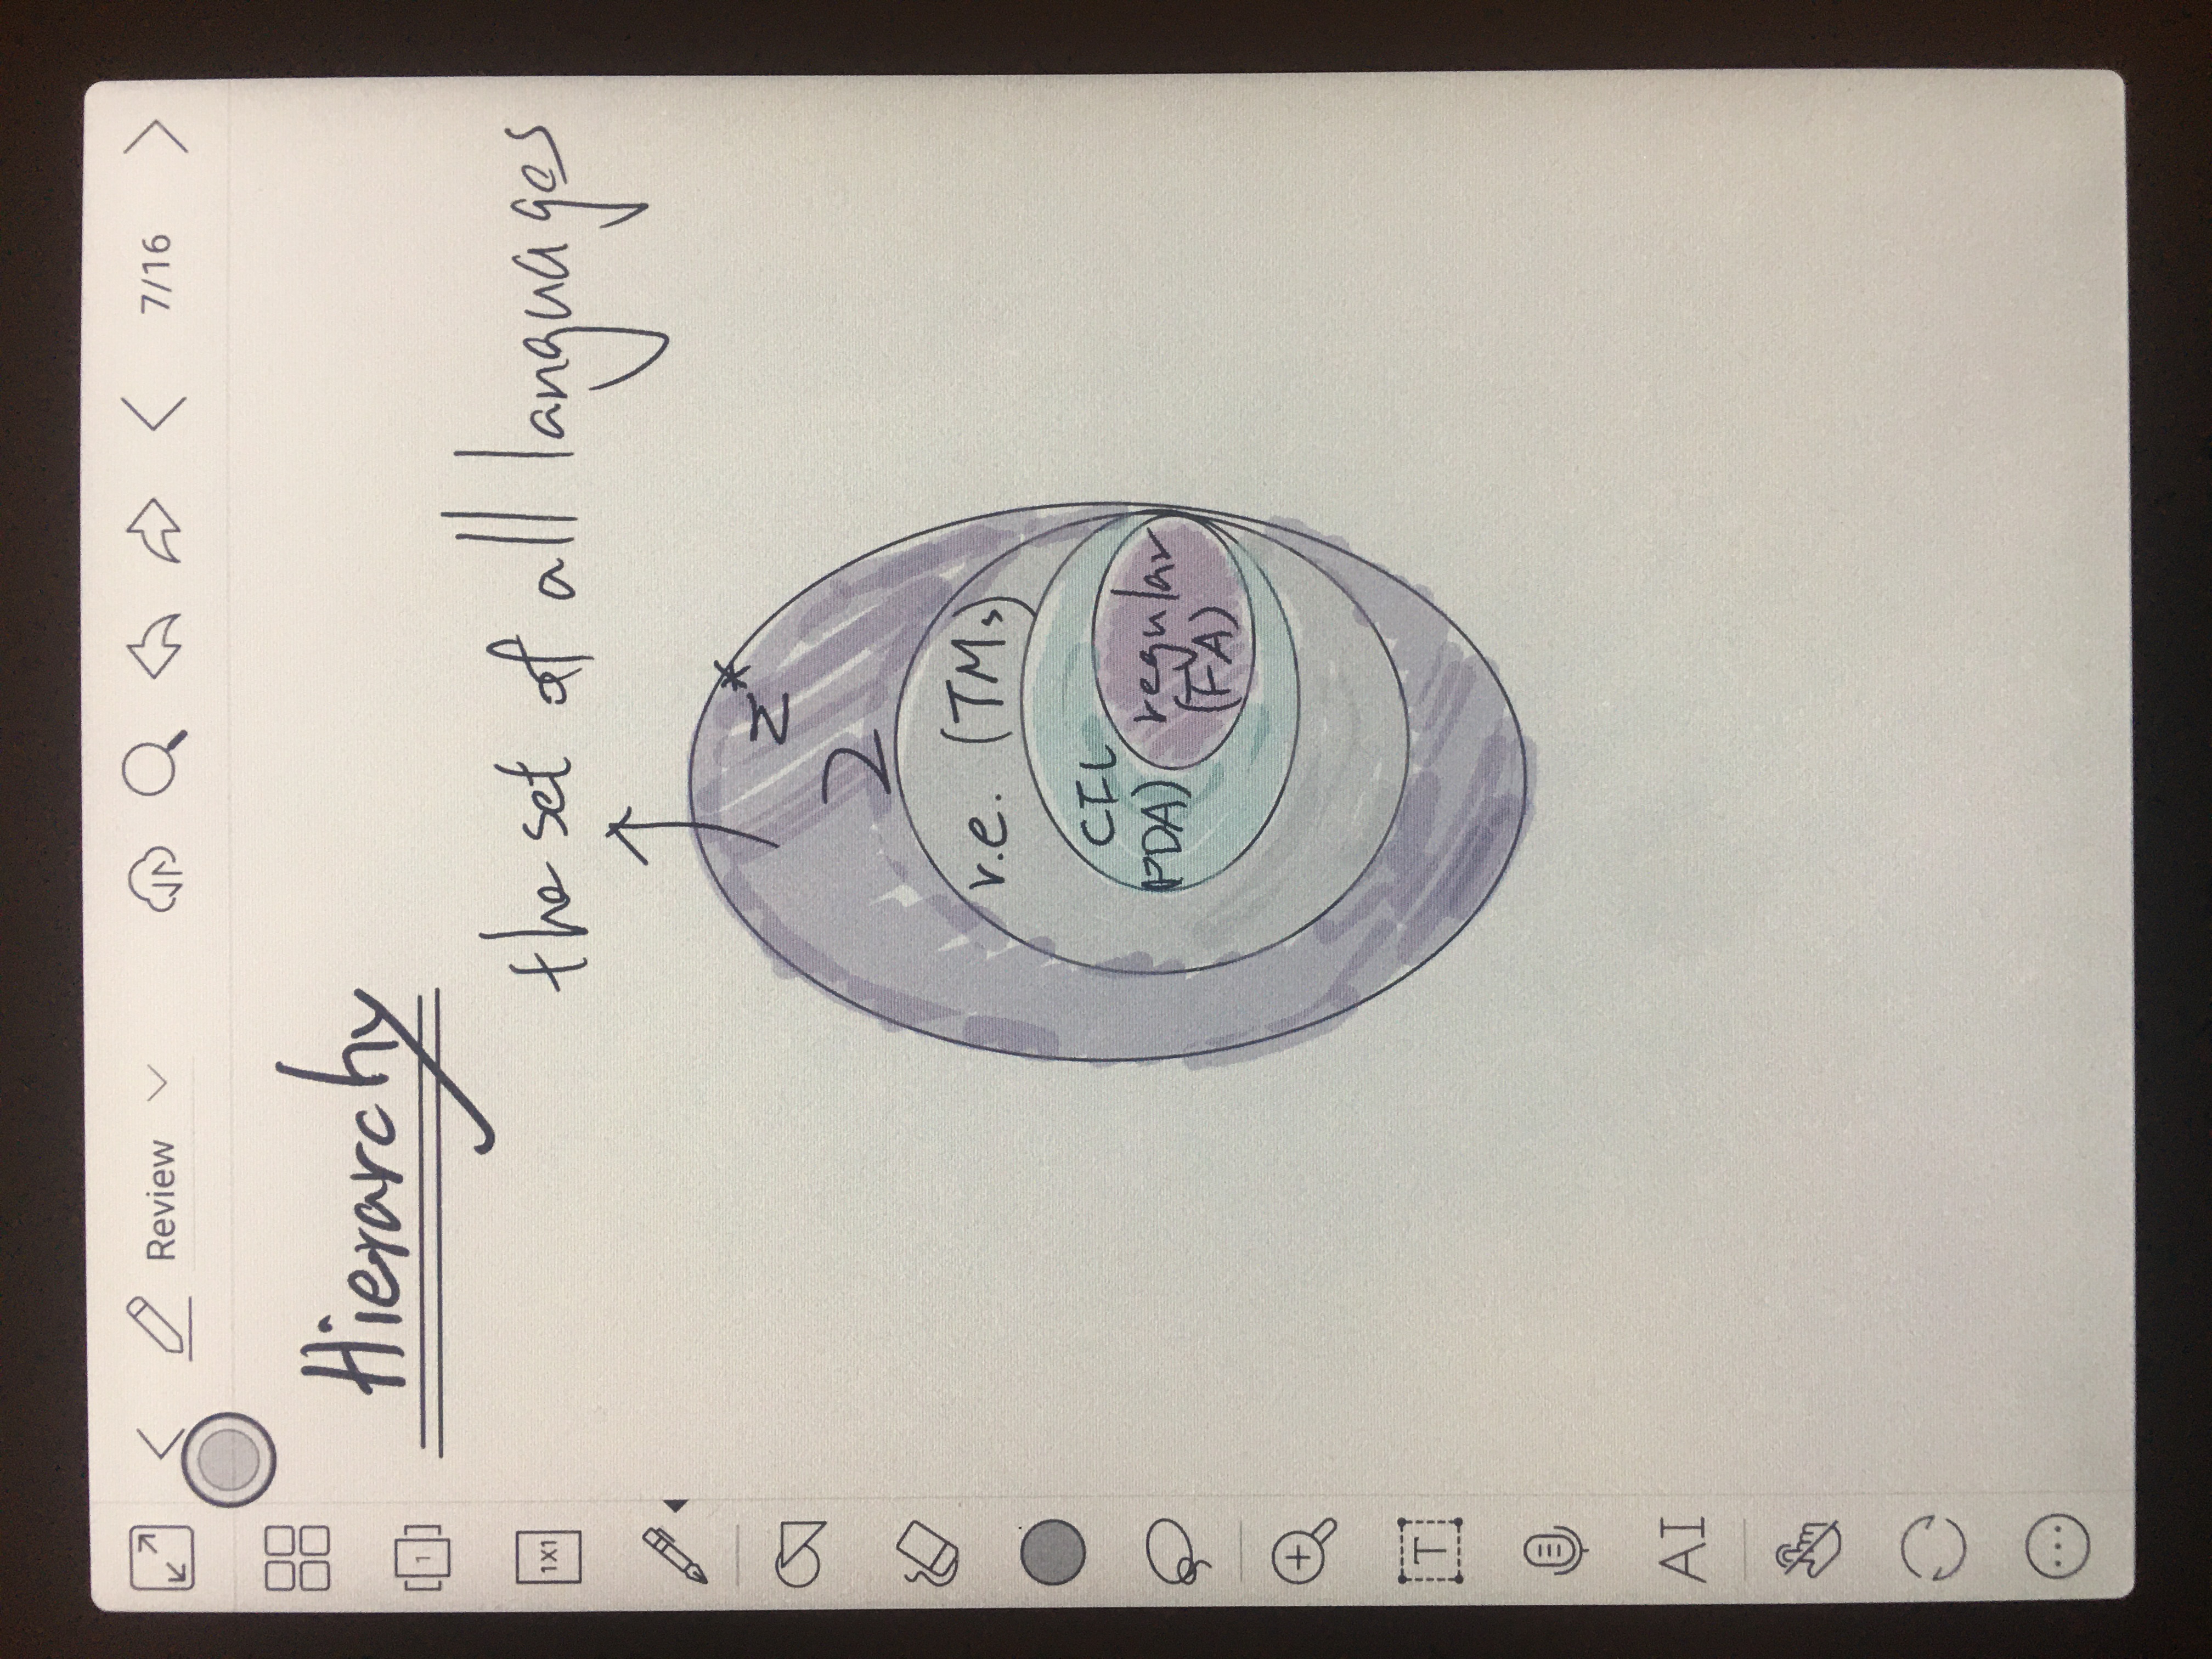 Review 7/16
1
1X1
T
AI
Hierarchy
the set of all languages
2^Σ*
r.e. (TMs)
CFL
(PDA)
regular
(FA)